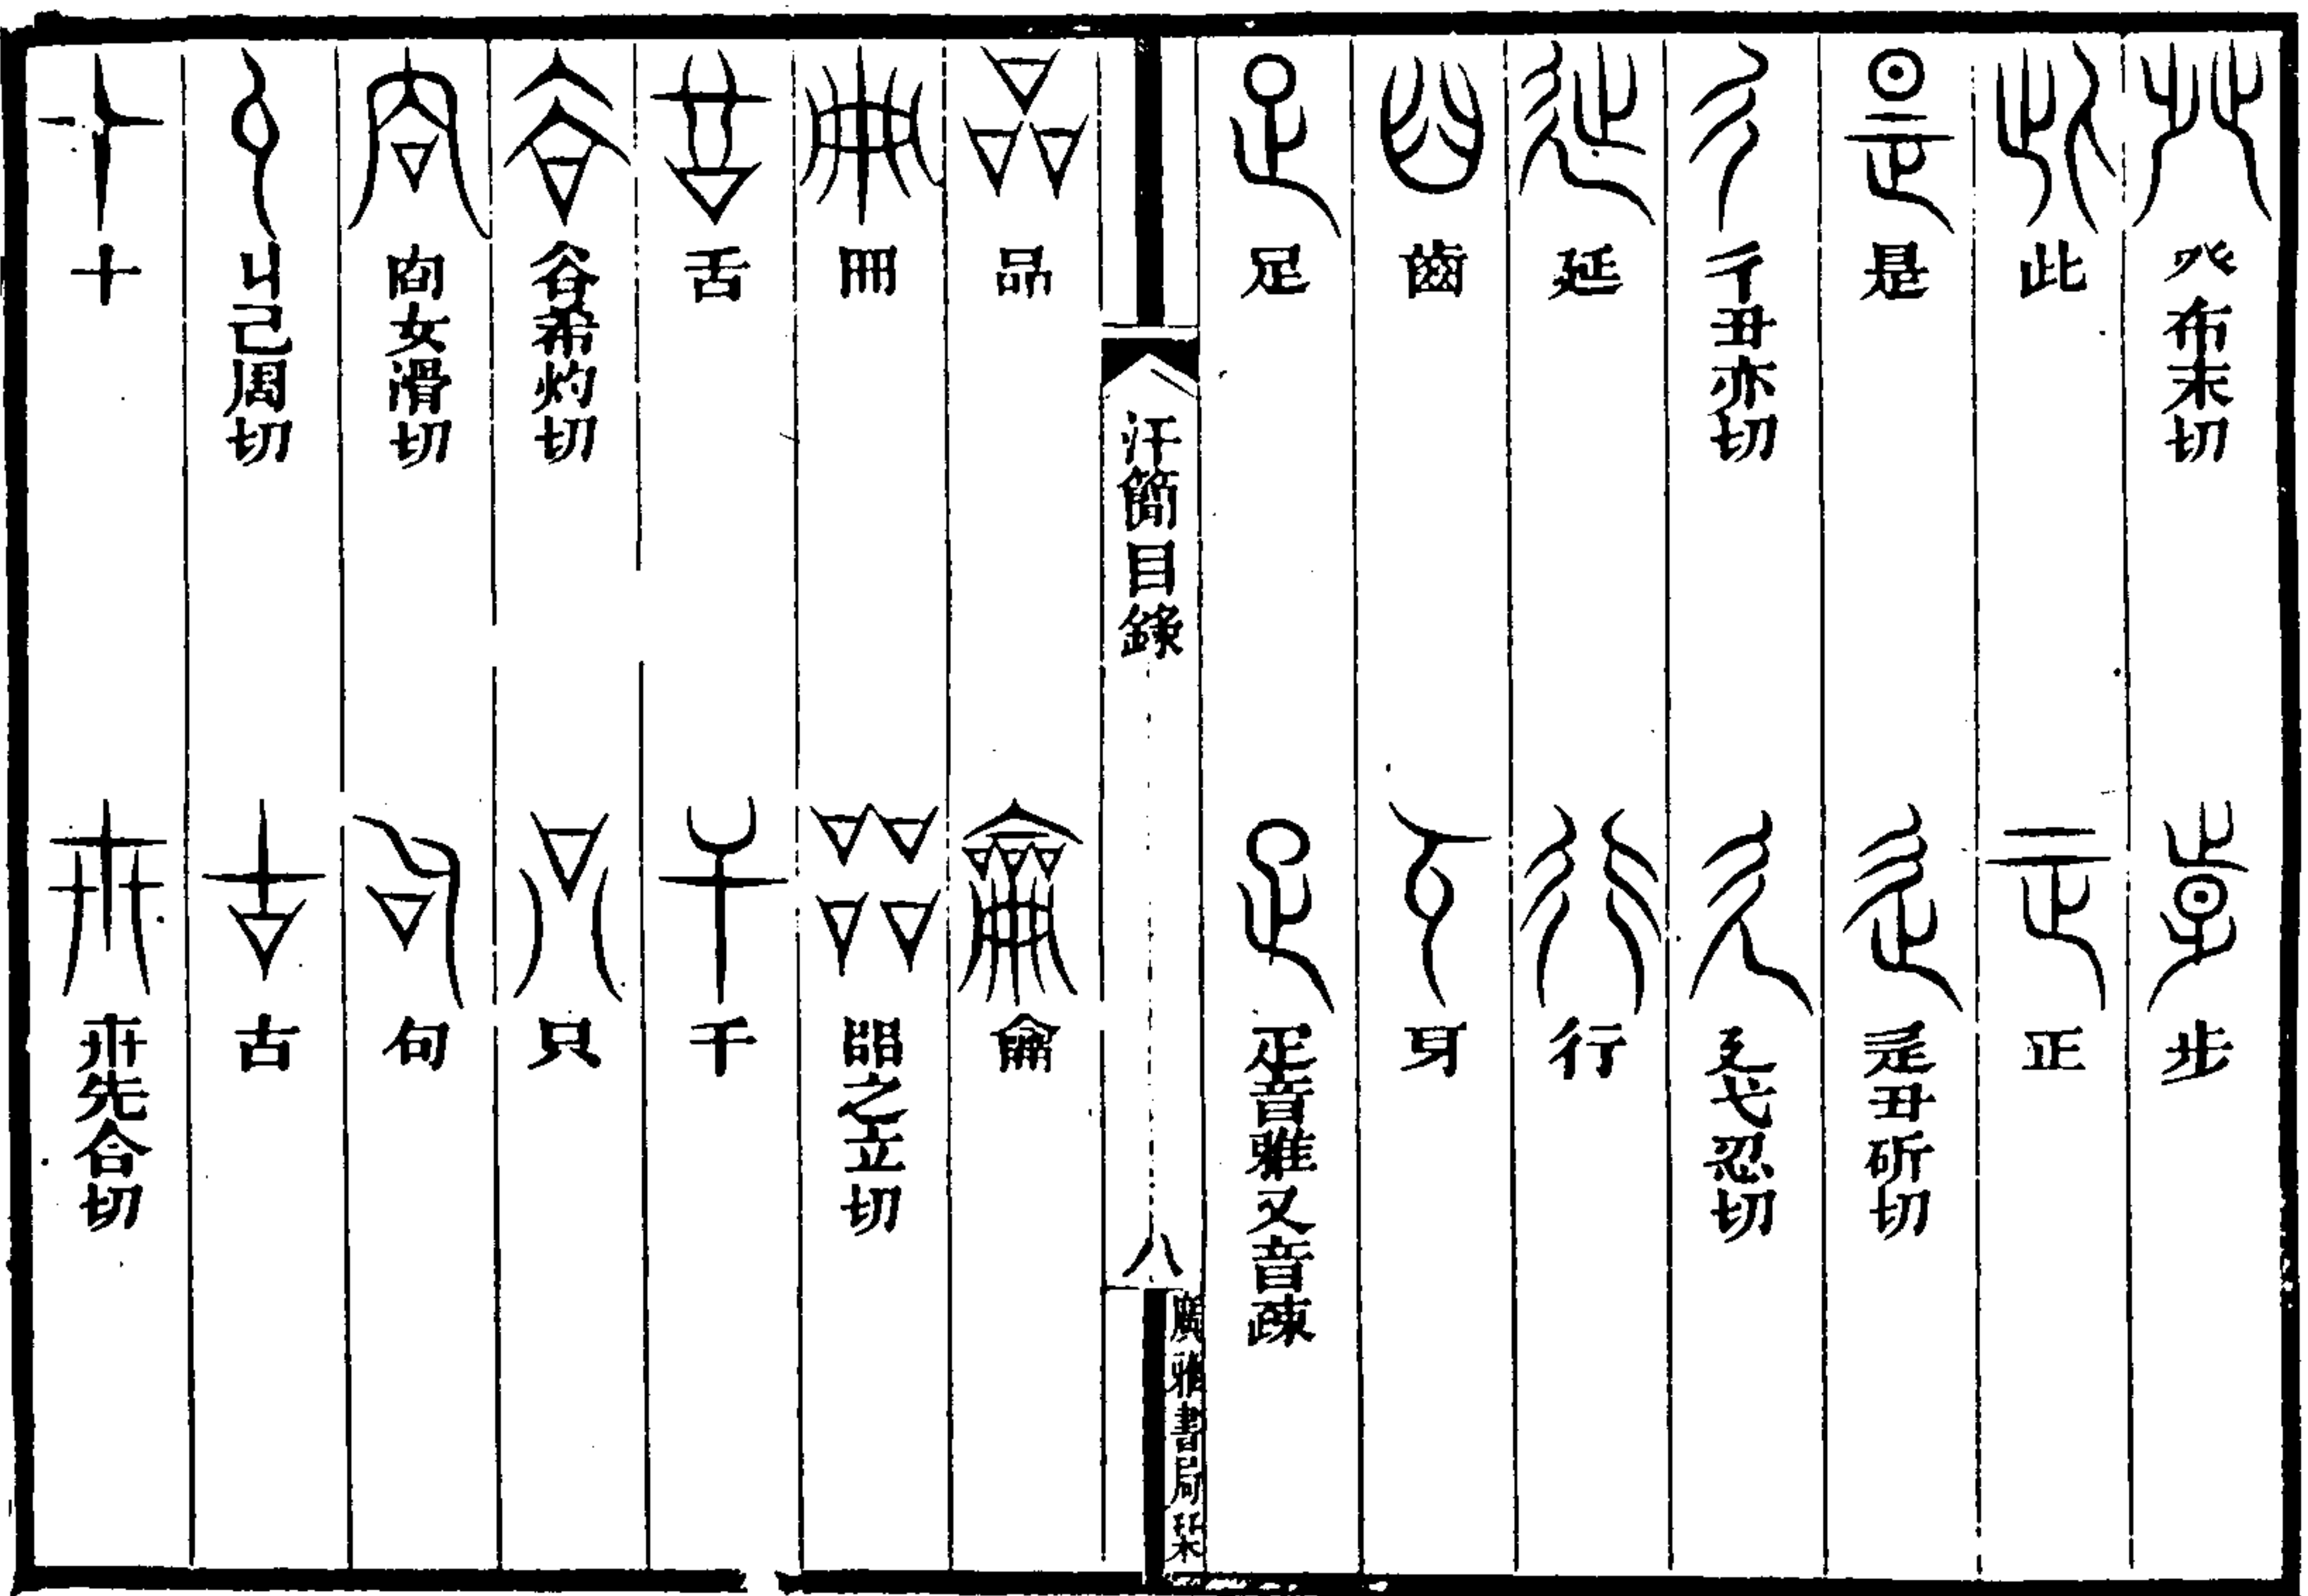 癶布末切 步
此 正
是 辵丑斫切
彳丑亦切 廴弋忍切
延 行
齒 牙
足 疋音雅又音疎
汗簡目錄 八 廣雅書局栞
品 龠
冊 㗊之立切
舌 干
谷希灼切 只
㕯女滑切 句
丩己周切 古
十 卅先合切